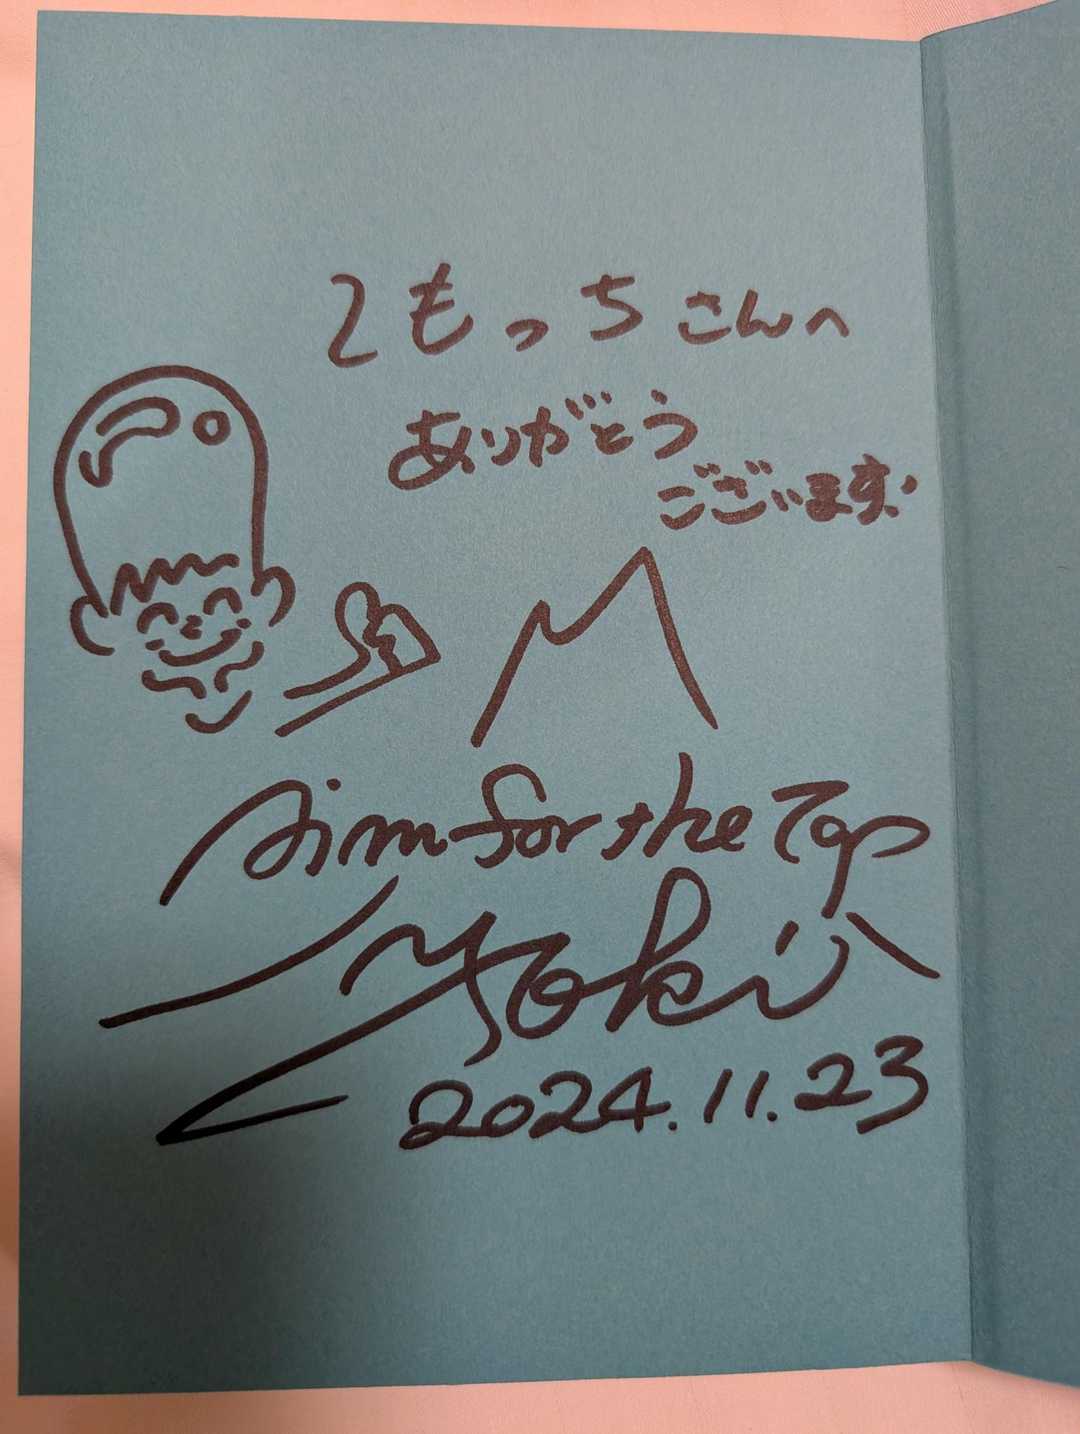 ともっちさんへ
ありがとう
ございます。
Aim for the Top
Yoki
2024.11.23